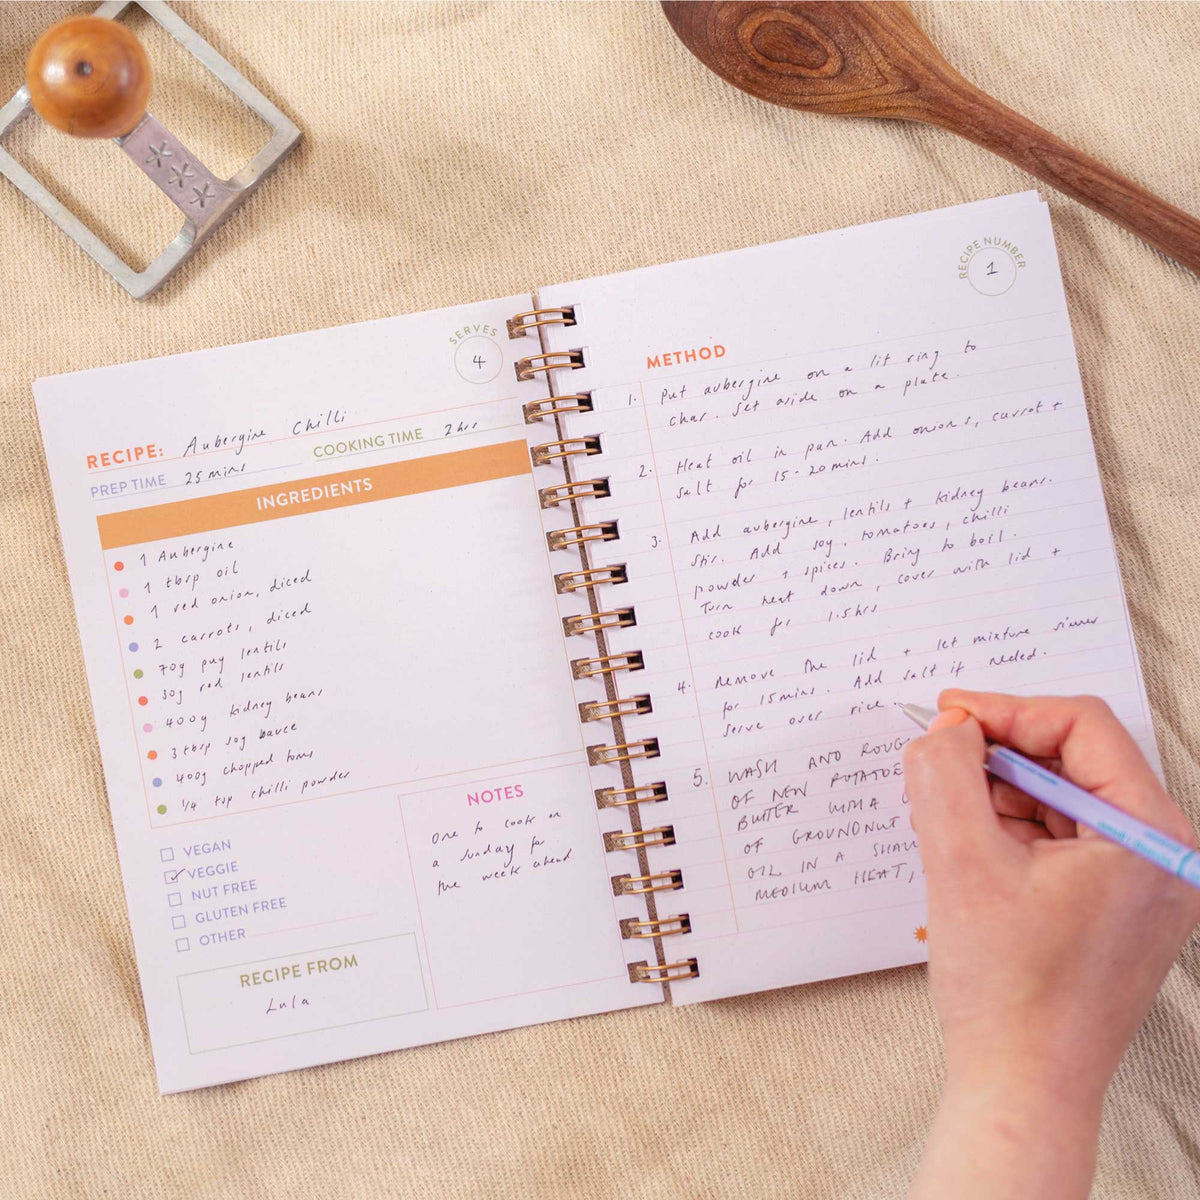 SERVES
4
RECIPE: Aubergine Chilli
PREP TIME 25 mins COOKING TIME 2 hrs
INGREDIENTS
1 Aubergine
1 tbsp oil
1 red onion, diced
2 carrots, diced
70g puy lentils
30g red lentils
400g kidney beans
3 tbsp soy sauce
400g chopped toms
1/4 tsp chilli powder
VEGAN
VEGGIE
NUT FREE
GLUTEN FREE
OTHER
NOTES
One to cook on
a Sunday for
the week ahead
RECIPE FROM
Lula
RECIPE NUMBER
1
METHOD
1. Put aubergine on a lit ring to
char. Set aside on a plate.
2. Heat oil in pan. Add onions, carrot +
salt for 15-20 mins.
3. Add aubergine, lentils + kidney beans.
Stir. Add soy, tomatoes, chilli
powder + spices. Bring to boil.
Turn heat down, cover with lid +
cook for 1.5 hrs
4. Remove the lid + let mixture simmer
for 15 mins. Add salt if needed.
Serve over rice.
5. WASH AND
OF NEW
BUTTER WITH A
OF GROUNDNUT
OIL IN A
MEDIUM HEAT,